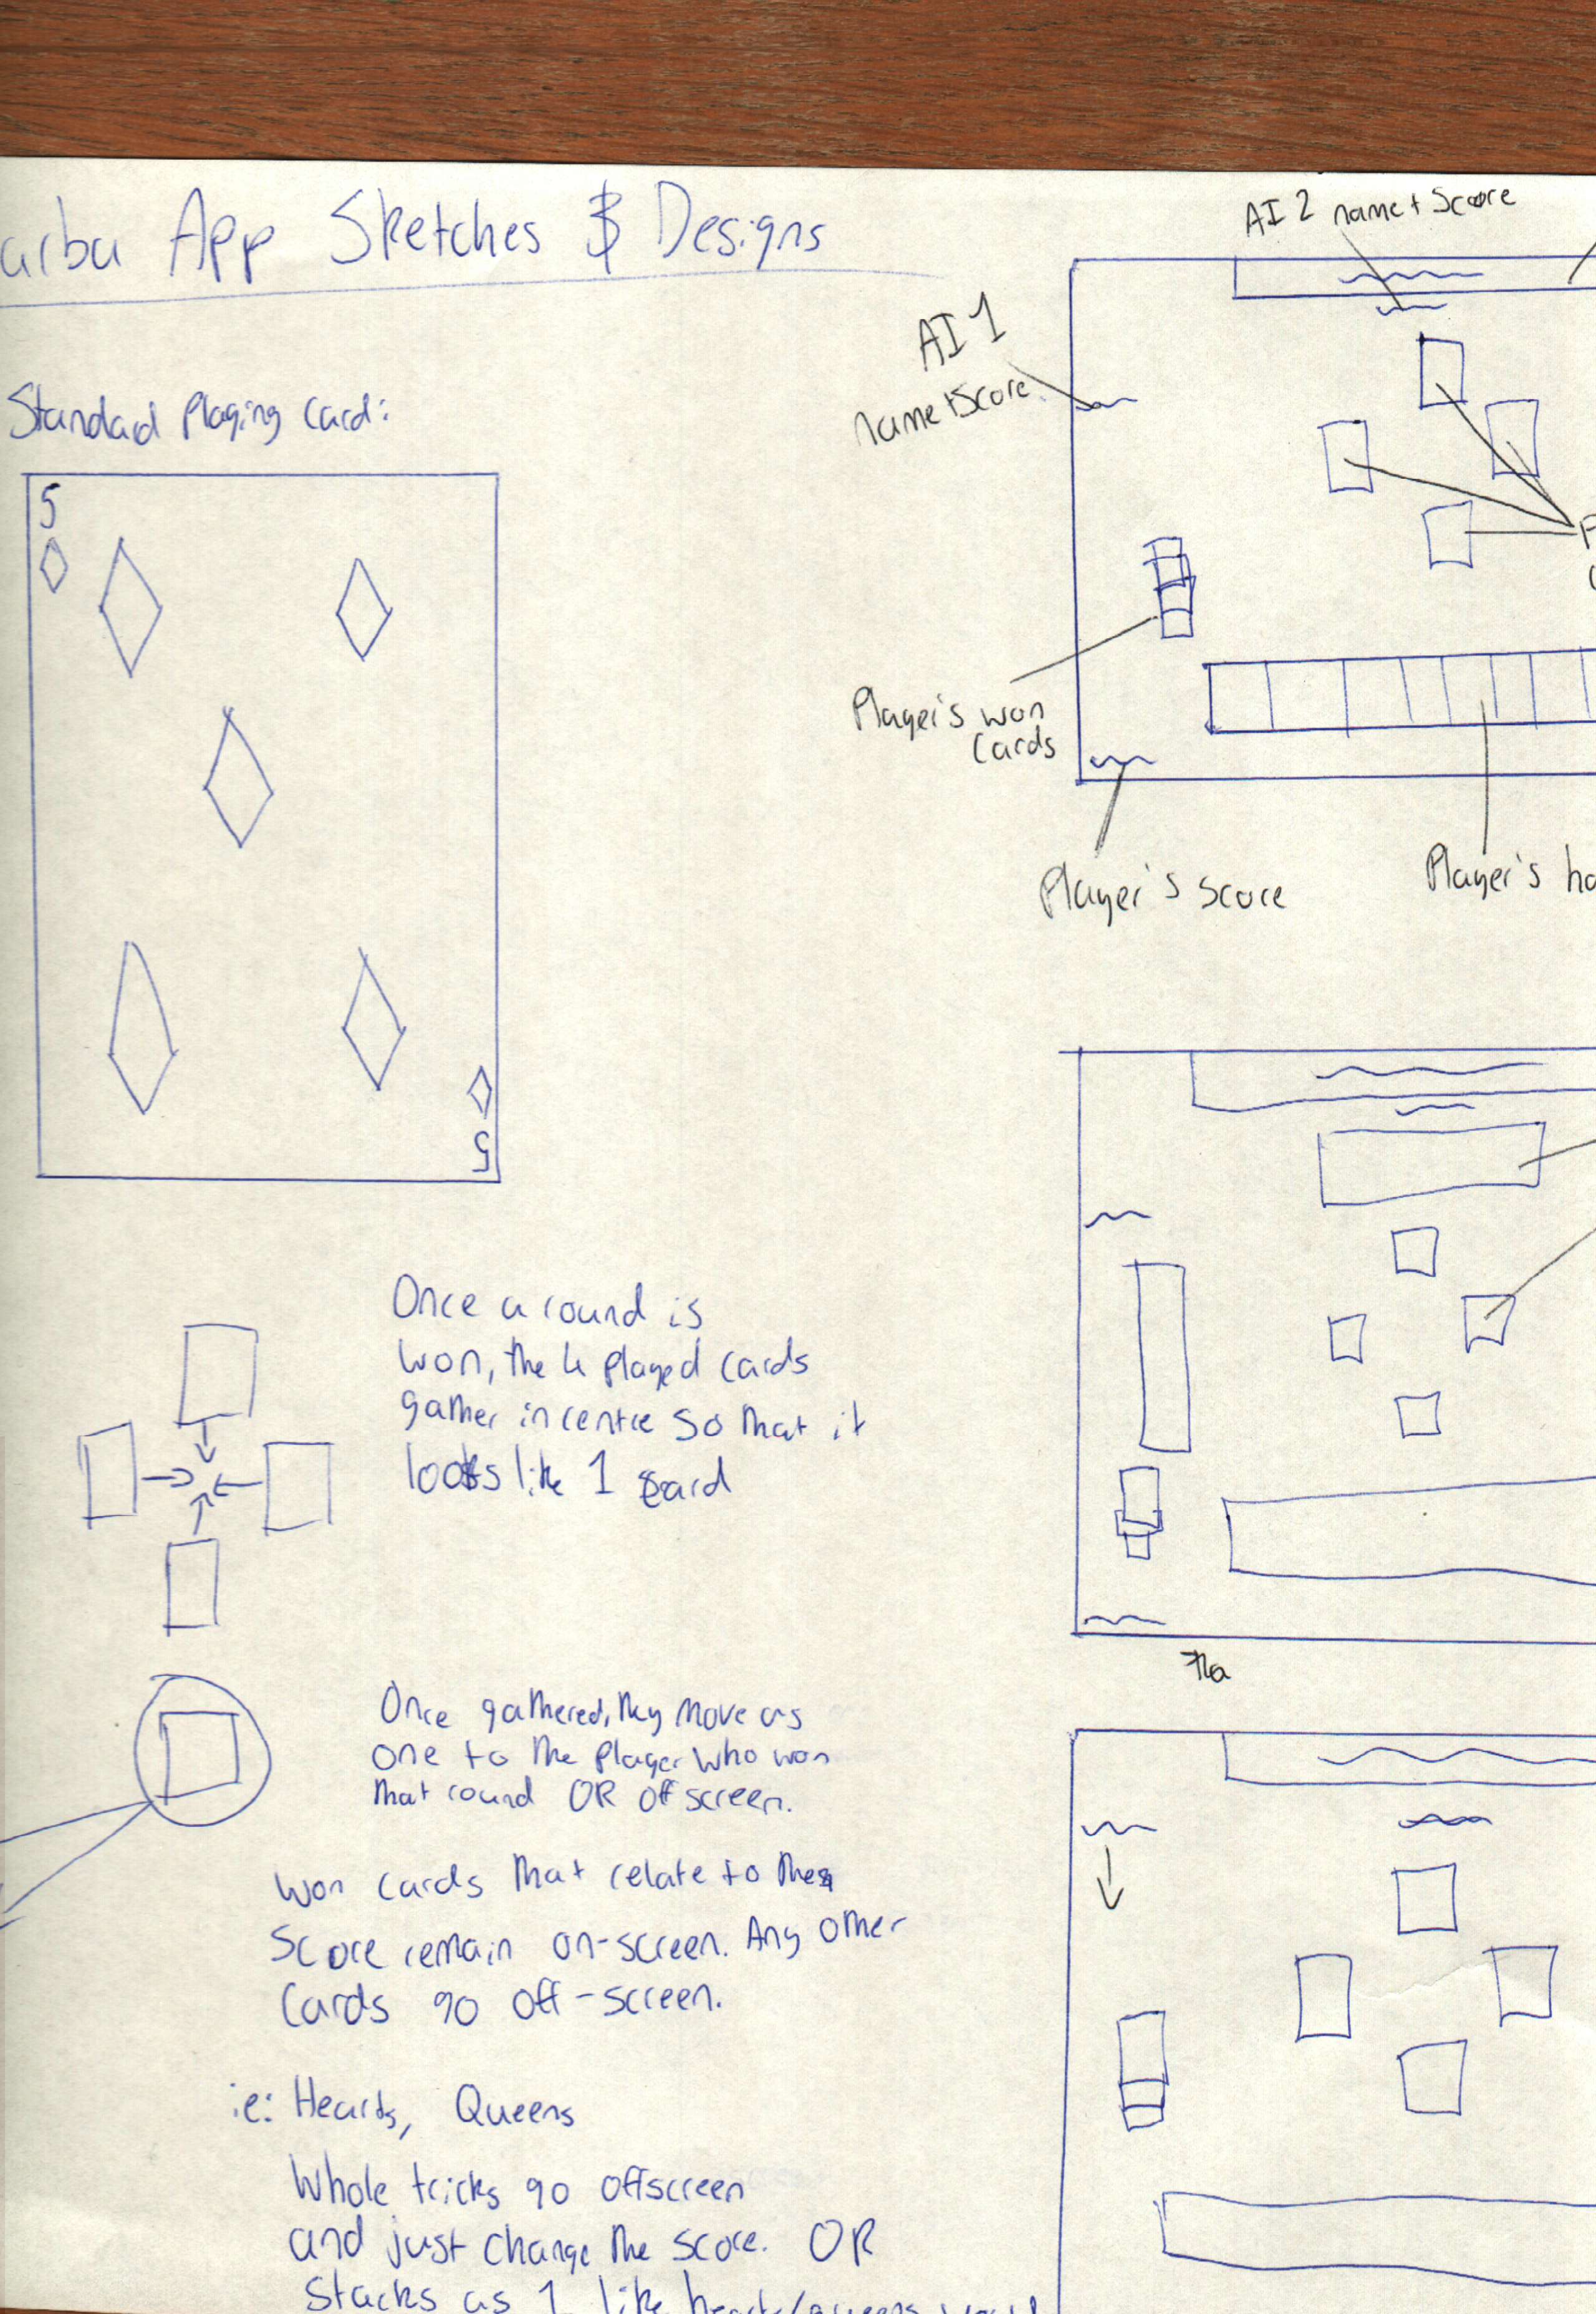 arba App Sketches & Designs
Standard Playing Card:
5
5
Once a round is
won, the 4 played cards
gather in centre so that it
looks like 1 card
Once gathered, they move as
one to the player who won
that round OR offscreen.
Won cards that relate to the
score remain on-screen. Any other
cards go off-screen.
ie: Hearts, Queens
Whole tricks go offscreen
and just change the score. OR
Stacks as 1 like hearts/queens
AI 2 name + Score
AI 1
name + Score
Player's won
cards
Player's score
Player's ha